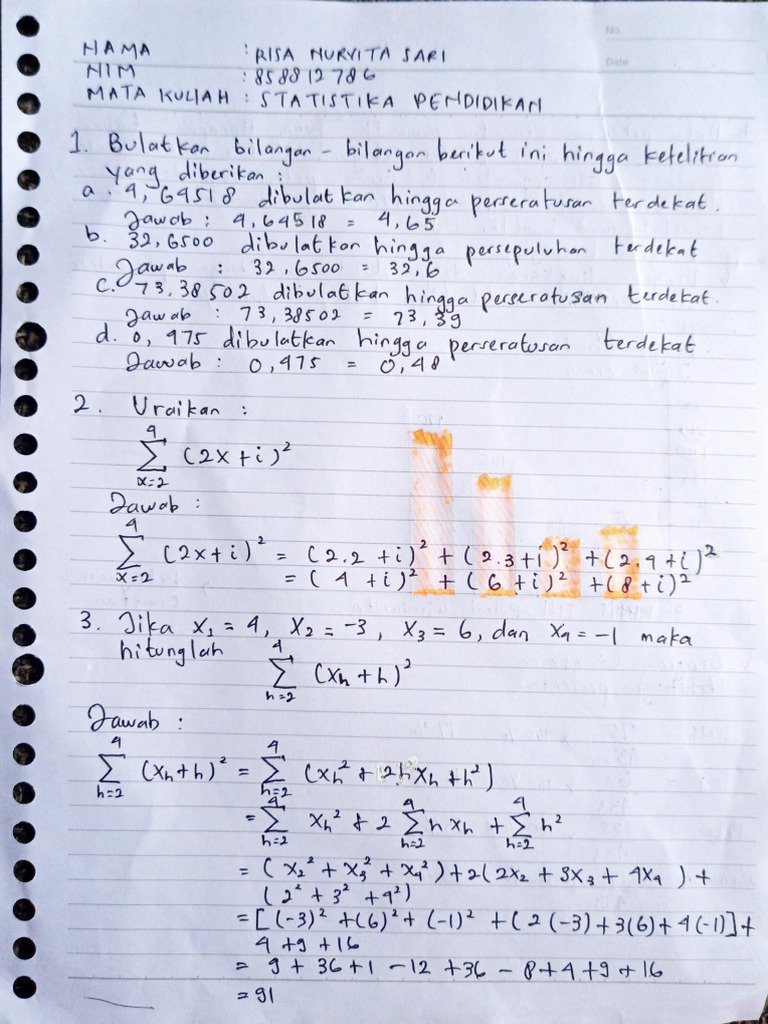 No.
Date
NAMA : RISA NURVITA SARI
NIM : 858812786
MATA KULIAH : STATISTIKA PENDIDIKAN
1. Bulatkan bilangan - bilangan berikut ini hingga ketelitian
yang diberikan :
a. 4,64518 dibulatkan hingga perseratusan terdekat.
Jawab : 4,64518 = 4,65
b. 32,6500 dibulatkan hingga persepuluhan terdekat
Jawab : 32,6500 = 32,6
c. 73,38502 dibulatkan hingga perseratusan terdekat.
Jawab : 73,38502 = 73,39
d. 0,475 dibulatkan hingga perseratusan terdekat
Jawab : 0,475 = 0,48
2. Uraikan :
4
∑ (2x+i)²
x=2
Jawab :
4
∑ (2x+i)² = (2.2 +i)² + (2.3+i)² + (2.4+i)²
x=2 = (4 +i)² + (6+i)² + (8+i)²
3. Jika X₁ = 4, X₂ = -3, X₃ = 6, dan X₄ = -1 maka
hitunglah 4
∑ (Xh + h)²
h=2
Jawab :
4 4
∑ (Xh+h)² = ∑ (Xh² + 2hXh + h²)
h=2 h=2
4 4 4
= ∑ Xh² + 2 ∑ h Xh + ∑ h²
h=2 h=2 h=2
= (X₂² + X₃² + X₄²) + 2(2X₂ + 3X₃ + 4X₄) +
(2² + 3² + 4²)
= [(-3)² + (6)² + (-1)² + (2(-3) + 3(6) + 4(-1)] +
4 + 9 + 16
= 9 + 36 + 1 - 12 + 36 - 8 + 4 + 9 + 16
= 91